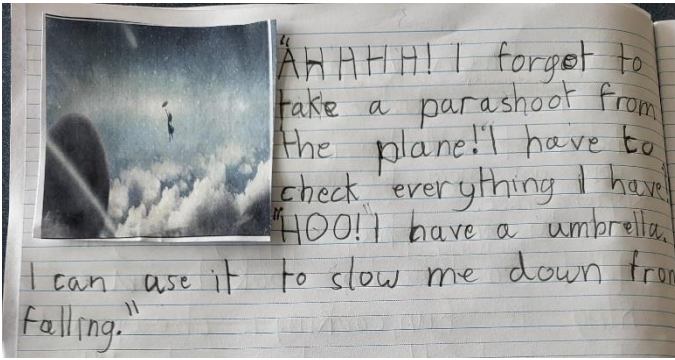 "AHHHH! I forget to
take a parashoot from
the plane!"I have to
check everything I have.
"HOO!"I have a umbrella.
I can use it to slow me down from
falling."